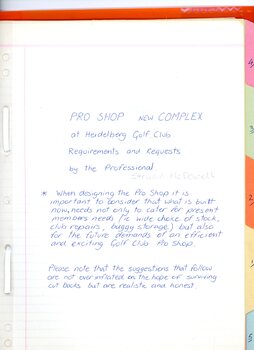 PRO SHOP NEW COMPLEX
at Heidelberg Golf Club
Requirements and Requests
by the Professional
* When designing the Pro Shop it is
important to consider that what is built
now, needs not only to cater for present
members needs (ie wide choice of stock,
club repairs, buggy storage) but also
for the future demands of an efficient
and exciting Golf Club Pro Shop.
Please note that the suggestions that follow
are not over inflated on the hope of surviving
cut backs but are realistic and honest.